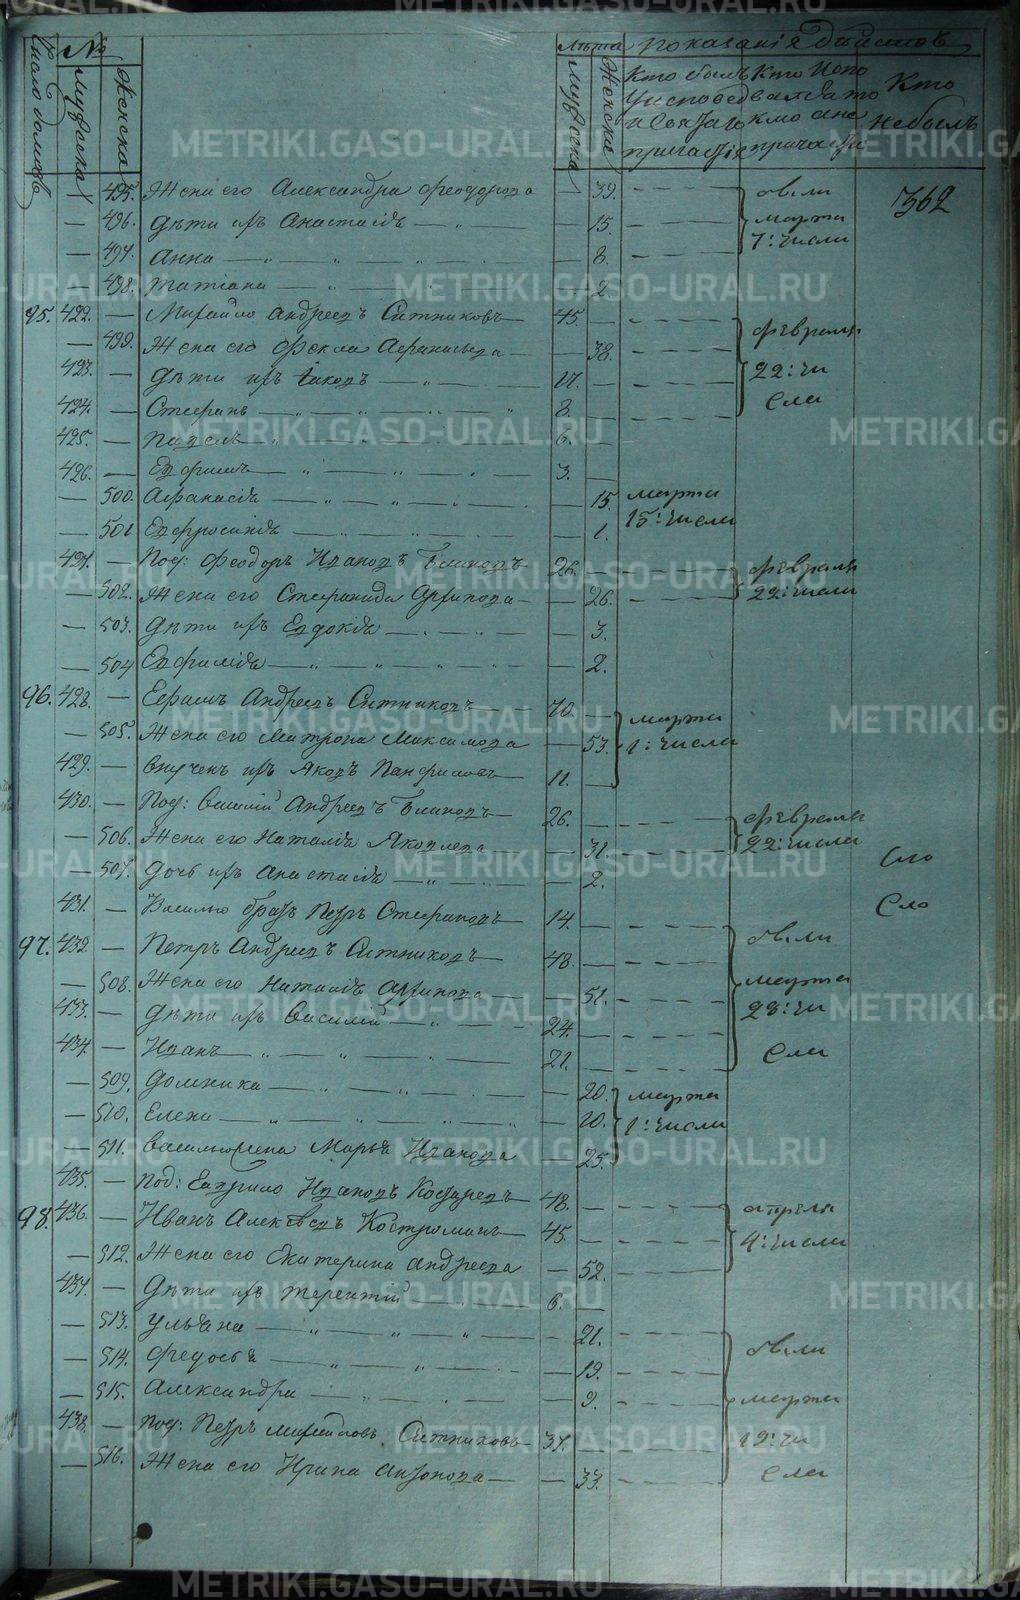 Число домовъ № Мужеска Женска Лѣта Мужеска Женска показанія дѣйствъ
Кто былъ у исповеди и Святаго причастія Кто испо ведвался а то кмо а не причасти Кто не былъ
362
— 495. Жена его Александра Феодорова — 39. были
— 496. Дѣти ихъ Анастасія — 15. марта
— 497. Анна — 8. 7: числа
— 498. Татіана — 2
95. 422. — Михайло Андреевъ Ситниковъ 45. февраля
— 499. Жена его Фекла Афанасьева — 38.
423. — Дѣти ихъ Іаковъ 17. 22: чи
424. — Стефанъ 8. сла
425. — Павелъ 6.
426. — Евфимъ 3.
— 500. Афанасія — 15. марта
— 501 Евфросинія — 1. 15: числа
427. — Под: Феодоръ Ивановъ Блиновъ 26. февраля
— 502. Жена его Стефанида — 26. 22: числа
— 503. Дѣти ихъ Евдокія — 3.
— 504 Евфимія — 2.
96. 428. — Ефимъ Андреевъ Ситниковъ 70. марта
— 505. Жена его Матрона Максимова — 53. 1: числа
429. — Внучекъ ихъ Яковъ Панфиловъ 11.
430. — Под: Василій Андреевъ Блиновъ 26. февраля
— 506. Жена его Наталія Яковлева — 31. 22: числа
— 507. Дочь ихъ Анастасія — 2.
431. — Василью братъ Петръ Стефановъ 14.
97. 432. — Петръ Андреевъ Ситниковъ 48. были
— 508. Жена его Наталія — 51. марта
433. — Дѣти ихъ Василій 24. 23: чи
434. — Иванъ 21. сла
— 509. Домника — 20. марта
— 510. Елена — 10. 1: числа
— 511. Василья жена Марья Иванова — 25.
435. — Под: Гаврило Ивановъ 48. апреля
98. 436. — Иванъ Алексѣевъ Костроминъ 45. 4: числа
— 512. Жена его Екатерина Андреева — 52.
437. — Дѣти ихъ Терентій 6.
— 513. Ульяна — 21. были
— 514. Федосья — 19.
— 515. Александра — 9. марта
438. — Под: Петръ Михайловъ Ситниковъ 37. 19: чи
— 516. Жена его Ирина Антонова — 33. сла
METRIKI.GASO-URAL.RU